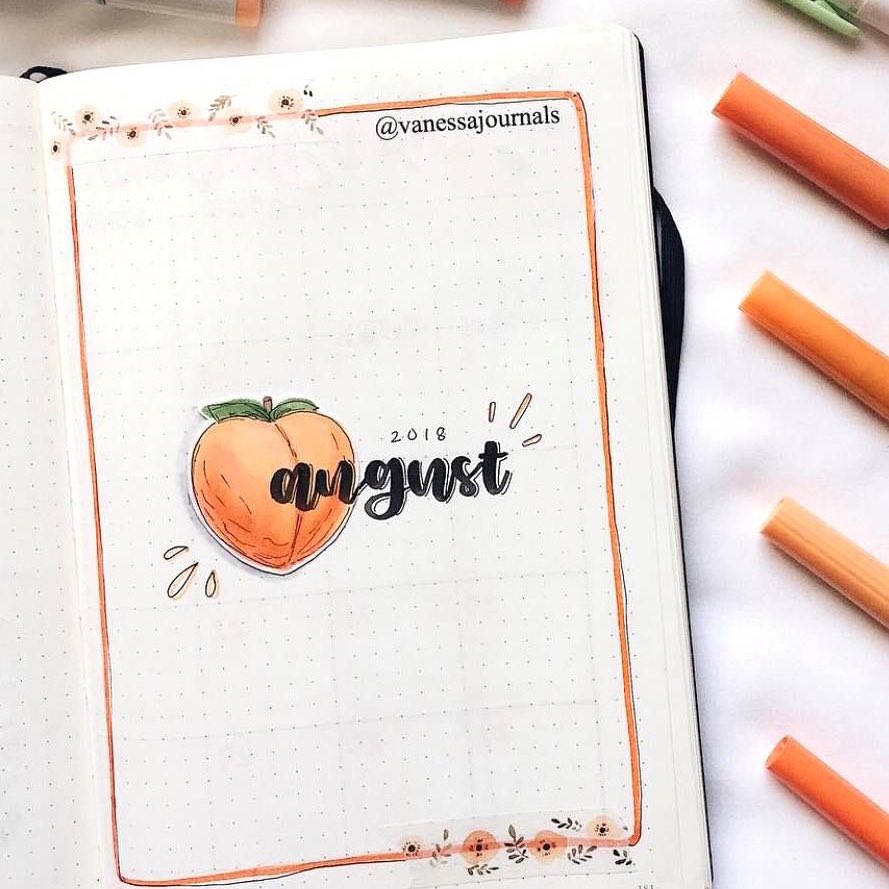 @vanessajournals
2018
august